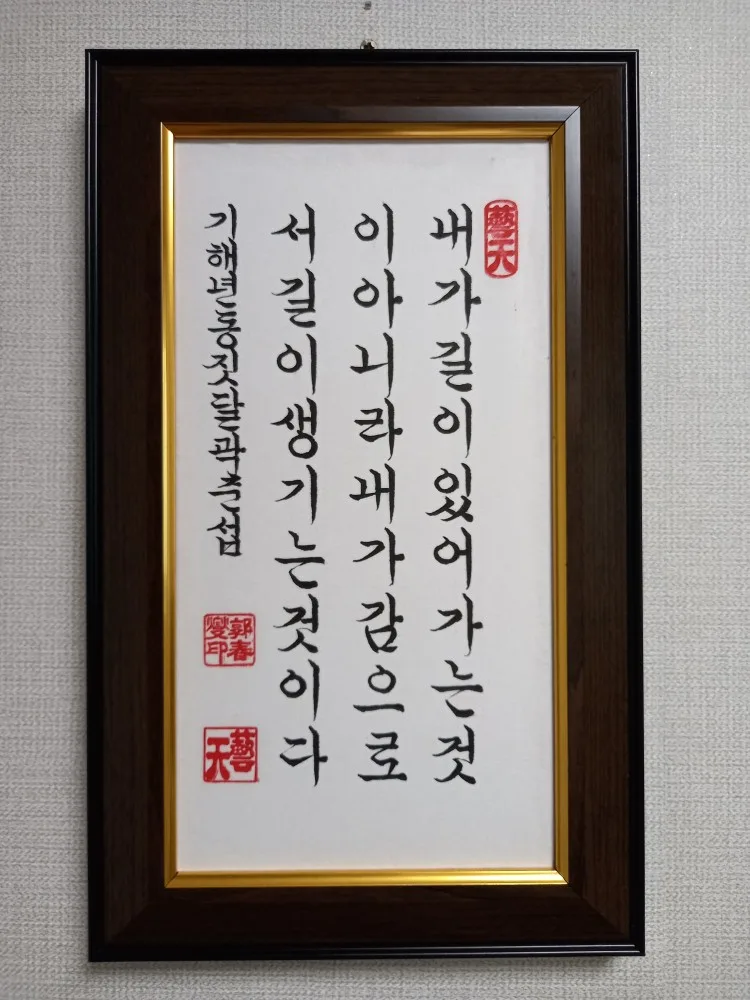 藝天
내가길이있어가는것
이아니라내가감으로
서길이생기는것이다
기해년동짓달곽춘섭
郭春燮印
藝天